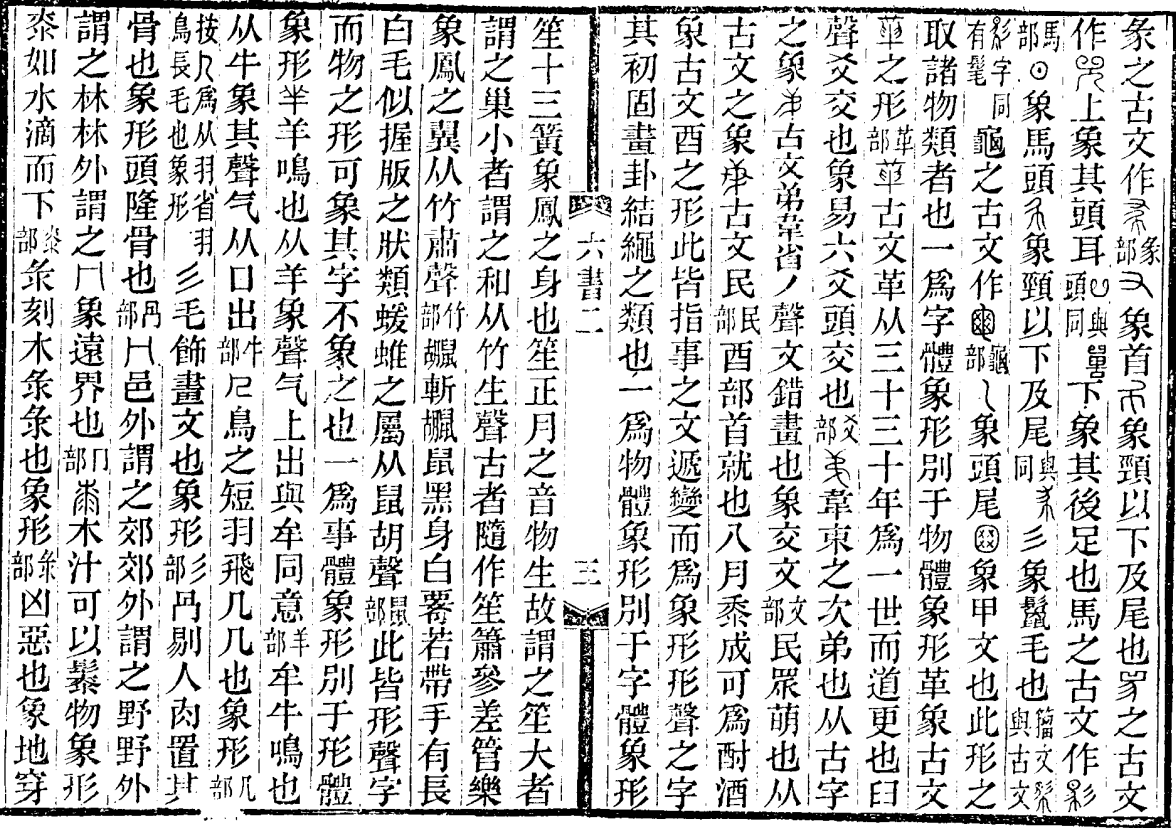 彖之古文作象部象首象頸以下及尾也之古文
作上象其頭耳與頭同下象其後足也馬之古文作
馬部象馬頭象頸以下及尾與同彡象鬣毛也籀文與古文
字同有髦龜之古文作龜部象頭尾象甲文也此形之
取諸物類者也一爲字體象形別于物體象形革象古文
之形革部古文革从三十三十年爲一世而道更也𦥑
聲爻交也象易六爻頭交也爻部韋束之次弟也从古字
之象古文弟韋省丿聲文錯畫也象交文文部民眾萌也从
古文之象古文民民部酉部首就也八月黍成可爲酎酒
象古文酉之形此皆指事之文遞變而爲象形形聲之字
其初固畫卦結繩之類也一爲物體象形別于字體象形
六書二
三
笙十三簧象鳳之身也笙正月之音物生故謂之笙大者
謂之巢小者謂之和从竹生聲古者隨作笙簫參差管樂
象鳳之翼从竹肅聲竹部斬鼠黑身白若帶手有長
白毛似握版之狀類蝯蜼之屬从鼠胡聲鼠部此皆形聲字
而物之形可象其字不象之也一爲事體象形別于形體
象形羊鳴也从羊象聲气上出與牟同意羊部牟牛鳴也
从牛象其聲气从口出牛部鳥之短羽飛几几也象形几部
按爲从羽省羽鳥長毛也象形彡毛飾畫文也象形彡部冎剔人肉置其
骨也象形頭隆骨也冎部冂邑外謂之郊郊外謂之野野外
謂之林林外謂之冂象遠界也冂部桼木汁可以髹物象形
桼如水滴而下桼部彔刻木彔彔也象形彔部凶惡也象地穿